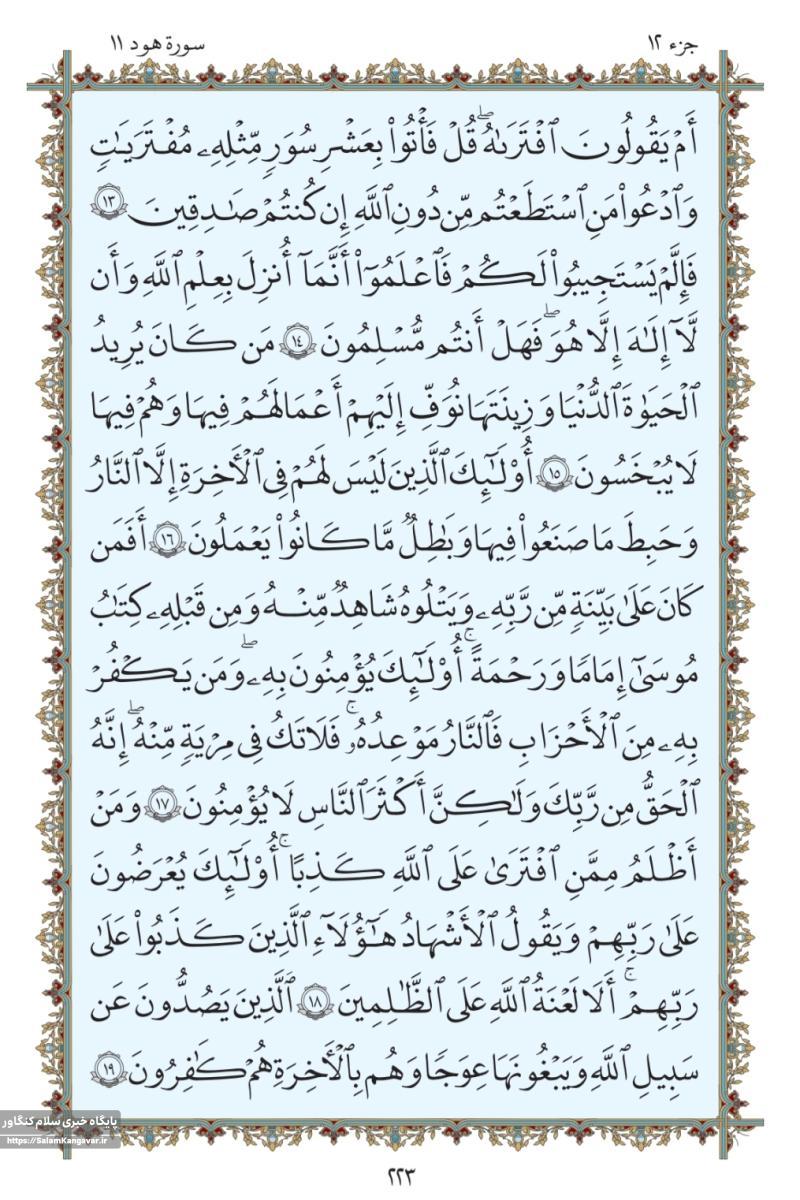 جزء ١٢
سورة هود ١١
أَمْ يَقُولُونَ ٱفْتَرَىٰهُ ۖ قُلْ فَأْتُوا۟ بِعَشْرِ سُوَرٍ مِّثْلِهِۦ مُفْتَرَيَٰتٍ
وَٱدْعُوا۟ مَنِ ٱسْتَطَعْتُم مِّن دُونِ ٱللَّهِ إِن كُنتُمْ صَٰدِقِينَ ١٣
فَإِلَّمْ يَسْتَجِيبُوا۟ لَكُمْ فَٱعْلَمُوٓا۟ أَنَّمَآ أُنزِلَ بِعِلْمِ ٱللَّهِ وَأَن
لَّآ إِلَٰهَ إِلَّا هُوَ ۖ فَهَلْ أَنتُم مُّسْلِمُونَ ١٤ مَن كَانَ يُرِيدُ
ٱلْحَيَوٰةَ ٱلدُّنْيَا وَزِينَتَهَا نُوَفِّ إِلَيْهِمْ أَعْمَالَهُمْ فِيهَا وَهُمْ فِيهَا
لَا يُبْخَسُونَ ١٥ أُو۟لَٰٓئِكَ ٱلَّذِينَ لَيْسَ لَهُمْ فِى ٱلْأَخِرَةِ إِلَّا ٱلنَّارُ
وَحَبِطَ مَا صَنَعُوا۟ فِيهَا وَبَٰطِلٌ مَّا كَانُوا۟ يَعْمَلُونَ ١٦ أَفَمَن
كَانَ عَلَىٰ بَيِّنَةٍ مِّن رَّبِّهِۦ وَيَتْلُوهُ شَاهِدٌ مِّنْهُ وَمِن قَبْلِهِۦ كِتَٰبُ
مُوسَىٰٓ إِمَامًا وَرَحْمَةً ۚ أُو۟لَٰٓئِكَ يُؤْمِنُونَ بِهِۦ ۖ وَمَن يَكْفُرْ
بِهِۦ مِنَ ٱلْأَحْزَابِ فَٱلنَّارُ مَوْعِدُهُۥ ۚ فَلَا تَكُ فِى مِرْيَةٍ مِّنْهُ ۖ إِنَّهُ
ٱلْحَقُّ مِن رَّبِّكَ وَلَٰكِنَّ أَكْثَرَ ٱلنَّاسِ لَا يُؤْمِنُونَ ١٧ وَمَنْ
أَظْلَمُ مِمَّنِ ٱفْتَرَىٰ عَلَى ٱللَّهِ كَذِبًا ۚ أُو۟لَٰٓئِكَ يُعْرَضُونَ
عَلَىٰ رَبِّهِمْ وَيَقُولُ ٱلْأَشْهَٰدُ هَٰٓؤُلَآءِ ٱلَّذِينَ كَذَبُوا۟ عَلَىٰ
رَبِّهِمْ ۚ أَلَا لَعْنَةُ ٱللَّهِ عَلَى ٱلظَّٰلِمِينَ ١٨ ٱلَّذِينَ يَصُدُّونَ عَن
سَبِيلِ ٱللَّهِ وَيَبْغُونَهَا عِوَجًا وَهُم بِٱلْأَخِرَةِ هُمْ كَٰفِرُونَ ١٩
پایگاه خبری سلام کنگاور
https://SalamKangavar.ir
٢٢٣